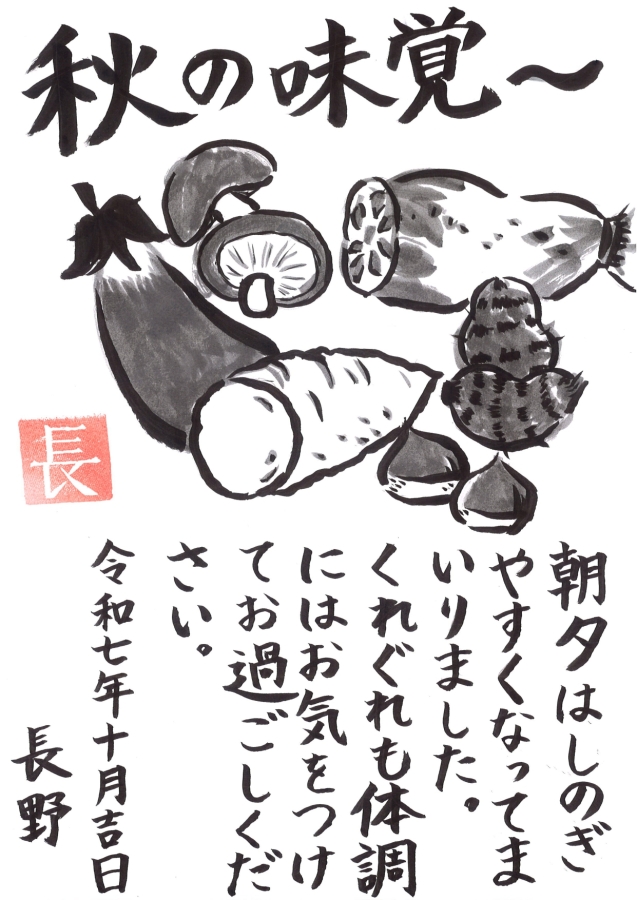 秋の味覚～
長
朝夕はしのぎ
やすくなってま
いりました。
くれぐれも体調
にはお気をつけ
てお過ごしくだ
さい。
令和七年十月吉日
長野